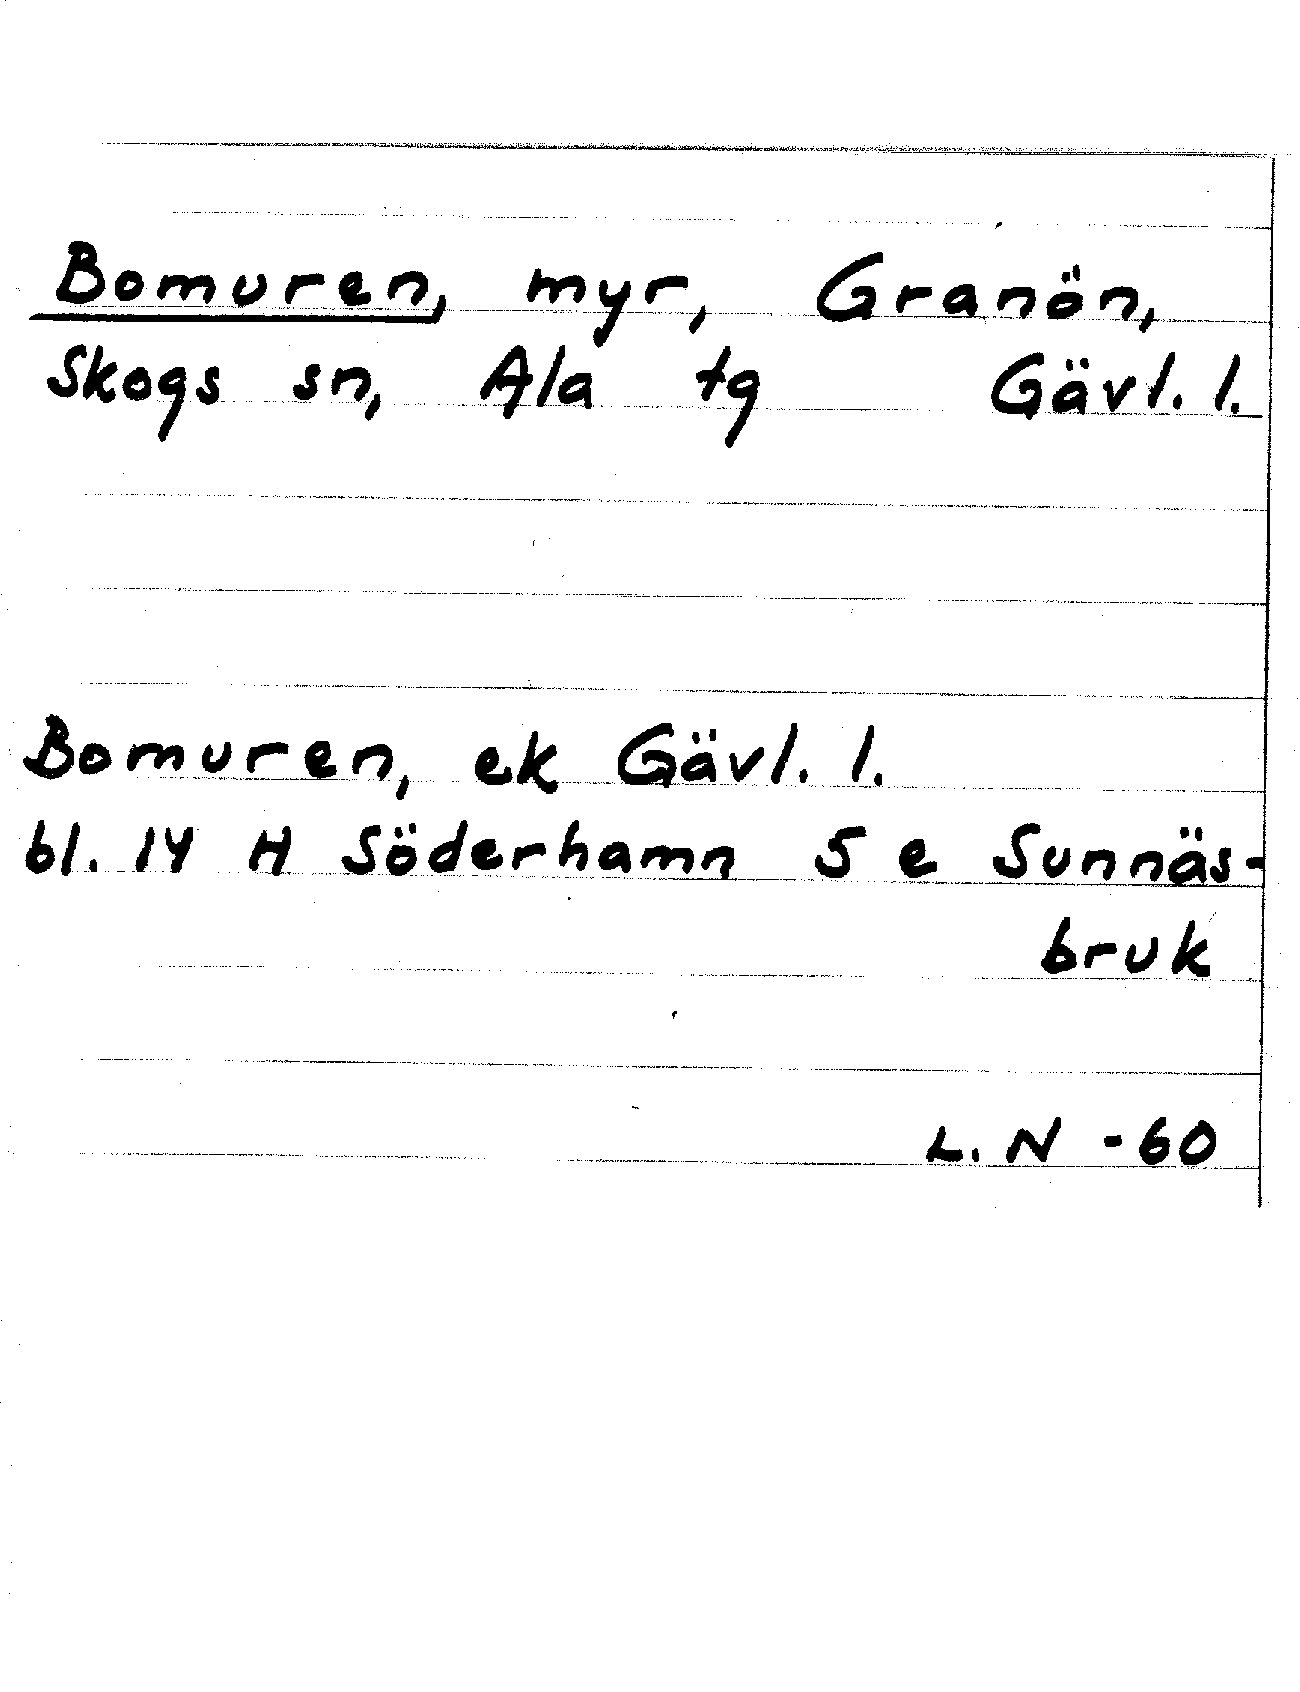 Bomuren, myr, Granön,
Skogs sn, Ala tg Gävl. l.
Bomuren, ek Gävl. l.
bl. 14 H Söderhamn 5 e Sunnäs-
bruk
L. N -60